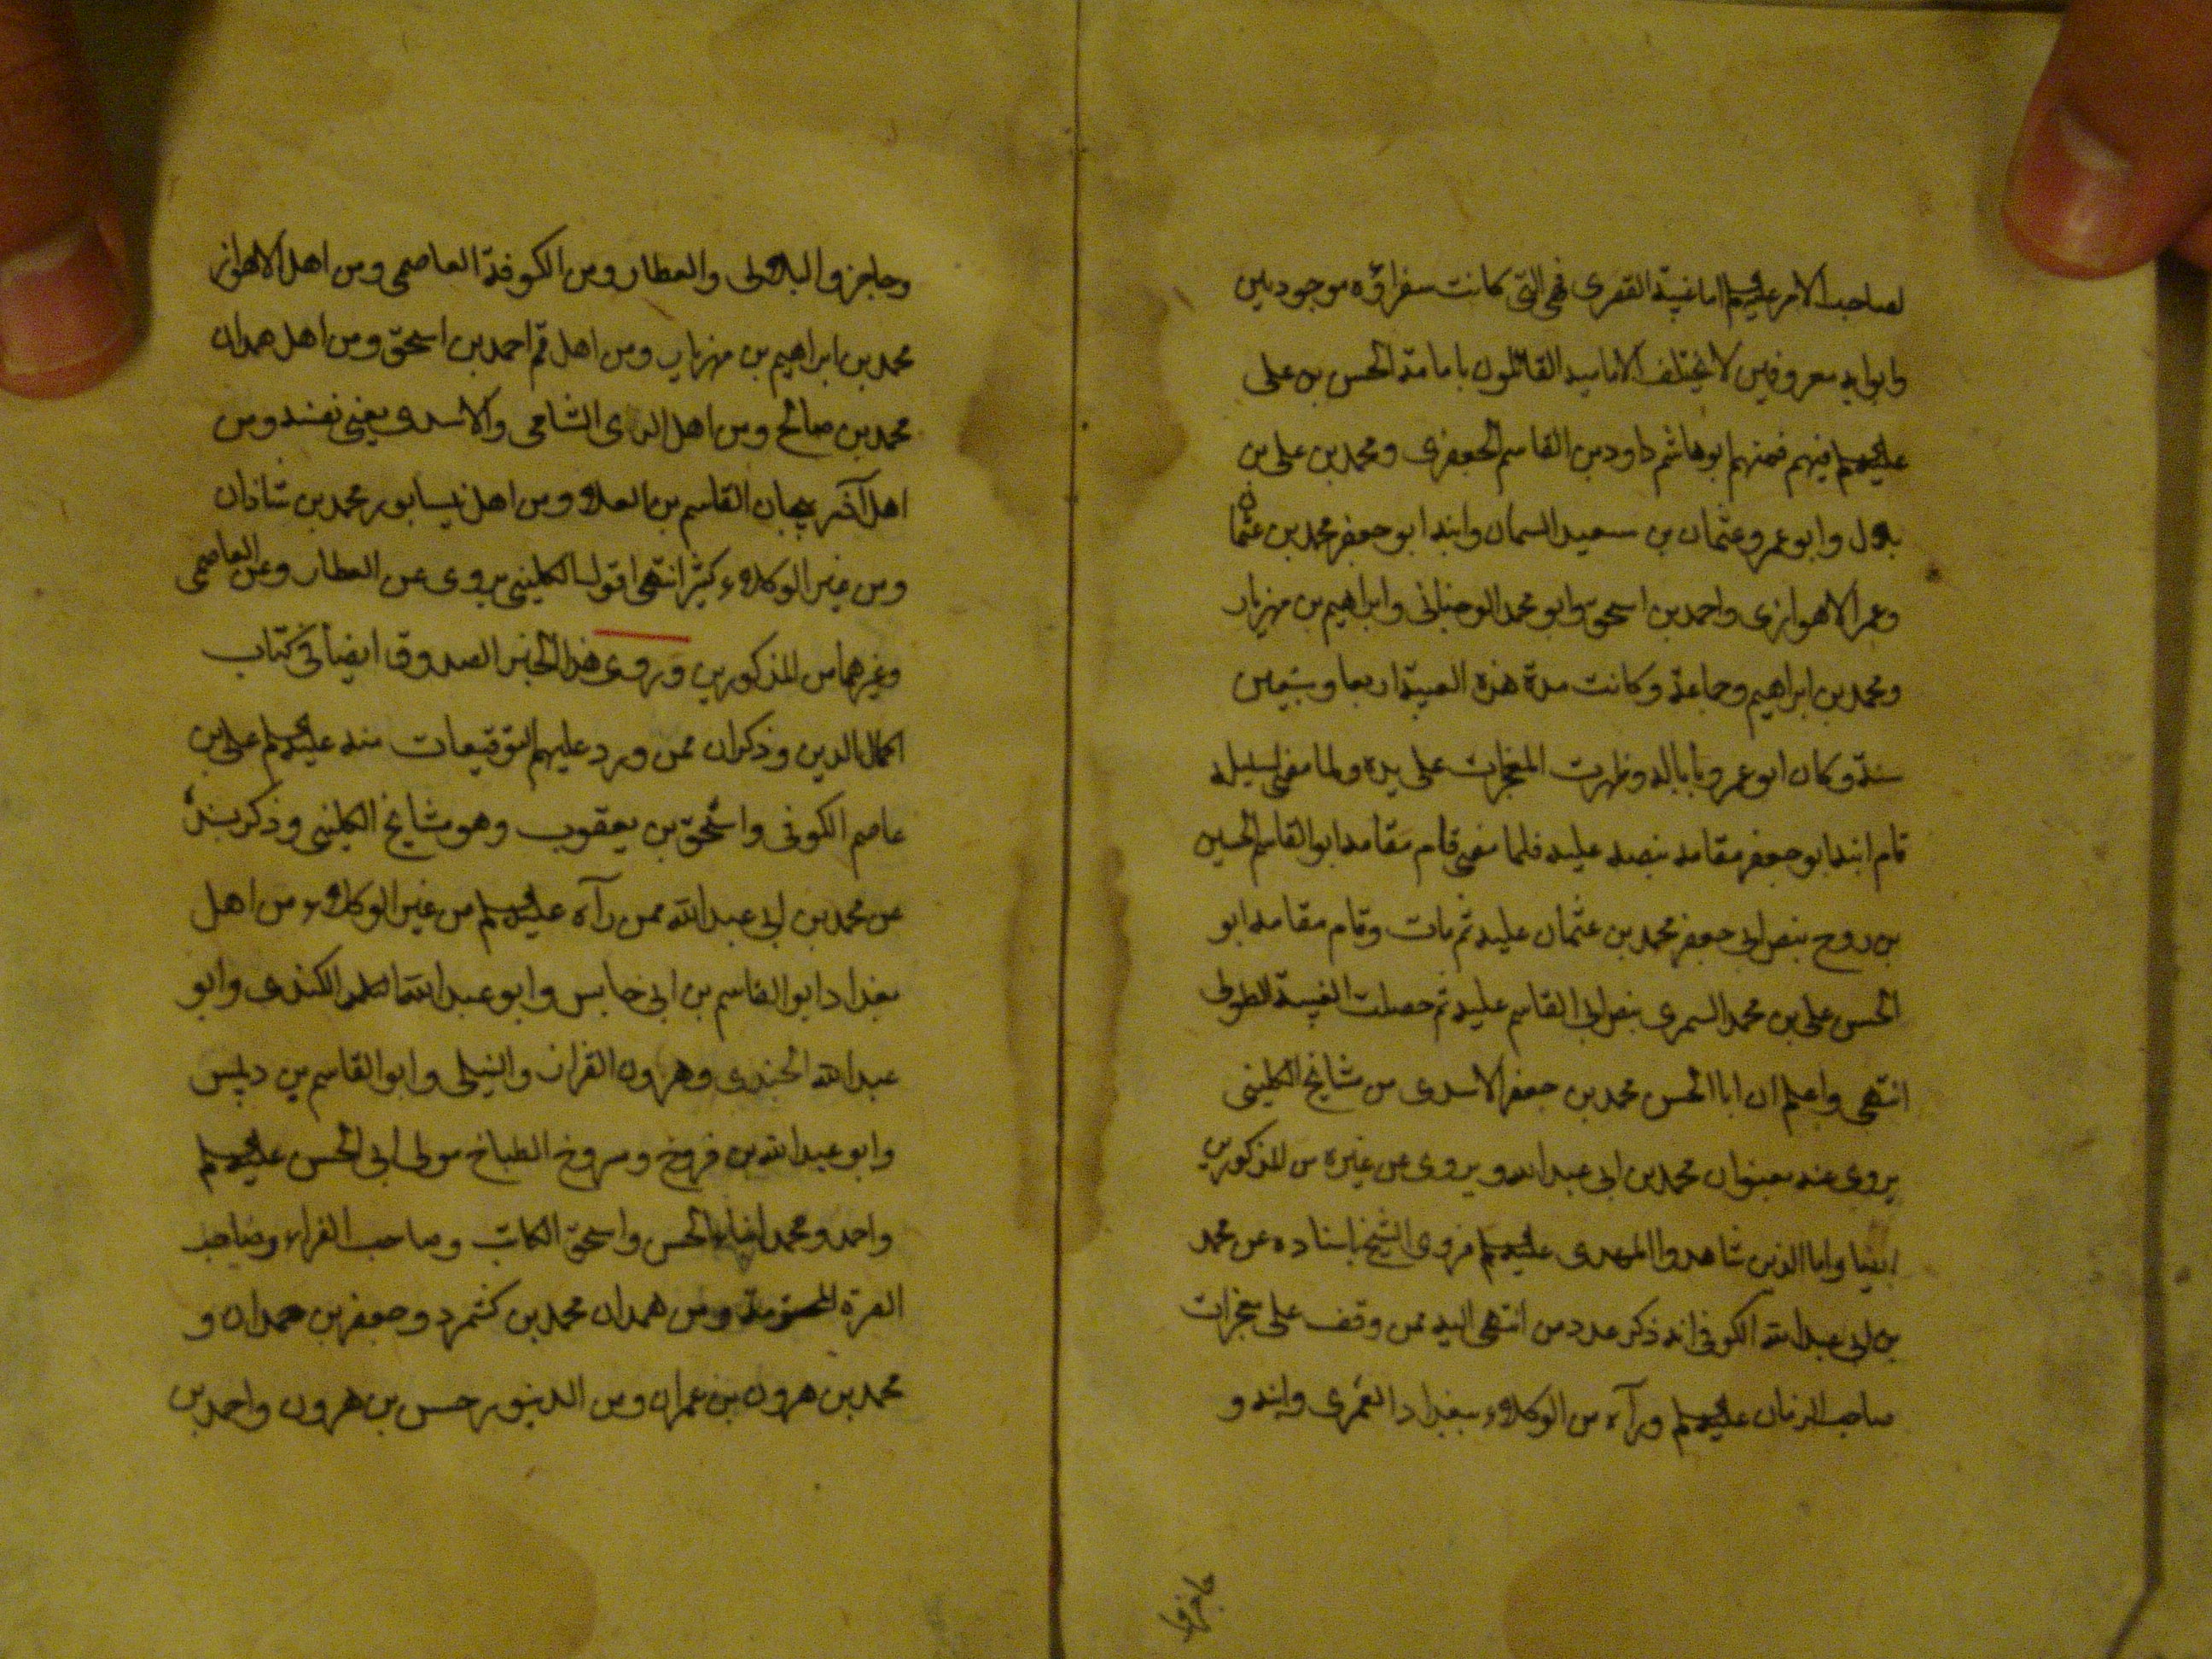 لصاحب الامر عليهم اما غيبة القصرى فهى التى كانت سفراؤه موجودين
وابوابه معروفين لا يختلف الاماميه القائلون بامامة الحسن بن على
عليهم فيهم فمنهم ابو هاشم داود بن القاسم الجعفرى ومحمد بن على بن
بلال وابو عمرو عثمان بن سعيد السمان وابنه ابو جعفر محمد بن عثمان
وعمر الاهوازى واحمد بن اسحق وابو محمد الوجنانى وابراهيم بن مهزيار
ومحمد بن ابراهيم وجماعة وكانت مدة هذه الغيبة اربعا وسبعين
سنة وكان ابو عمرو بابا له وظهرت المعجزات على يده ولما مضى لسبيله
قام ابنه ابو جعفر مقامه بنصه عليه فلما مضى قام مقامه ابو القاسم الحسين
بن روح بنص ابى جعفر محمد بن عثمان عليه ثم مات وقام مقامه ابو
الحسن على بن محمد السمرى بنص ابى القاسم عليه ثم حصلت الغيبة الطولى
انتهى واعلم ان ابا الحسن محمد بن جعفر الاسدى من مشايخ الكلينى
يروى عنه بعنوان محمد بن ابى عبد الله ويروى عن غيره من المذكورين
ايضا واما الذين شاهدوا المهدى عليهم فروى الشيخ باسناده عن محمد
بن ابى عبد الله الكوفى انه ذكر عدد من انتهى اليه ممن وقف على معجزات
صاحب الزمان عليهم ورآه من الوكلاء ببغداد العمرى وابنه و
وحاجز والبلالى والعطار ومن الكوفة العاصمى ومن اهل الاهواز
محمد بن ابراهيم بن مهزيار ومن اهل قم احمد بن اسحق ومن اهل همدان
محمد بن صالح ومن اهل الرى الشامى والاسدى يعنى نفسه ومن
اهل آذربيجان القاسم بن العلا ومن اهل نيسابور محمد بن شاذان
ومن غير الوكلاء كثير انتهى اقول الكلينى يروى عن العطار وعن العاصمى
وغيرهما من المذكورين وروى هذا الخبر الصدوق ايضا فى كتاب
اكمال الدين وذكر ان ممن ورد عليهم التوقيعات منه عليهم على بن
عاصم الكوفى واسحق بن يعقوب وهو مشايخ الكلينى وذكر بسنده
عن محمد بن ابى عبد الله ممن رآه عليهم من غير الوكلاء من اهل
بغداد ابو القاسم بن ابى حابس وابو عبد الله الكندى وابو
عبد الله الجنيدى وهرون القزاز والنيلى وابو القاسم بن دبيس
وابو عبد الله بن فروخ ومسروخ الطباخ مولى ابى الحسن عليهم
واحمد ومحمد ابناء الحسن واسحق الكاتب وصاحب الفراء وصاحب
الصرة المختومة ومن همدان محمد بن كشمرد وجعفر بن حمدان و
محمد بن هرون بن عمران ومن الدينور حسن بن هرون واحمد بن